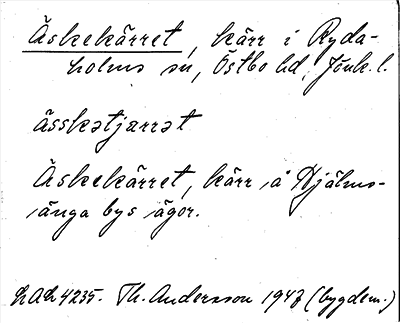 Äskekärret, kärr i Ryda-
holms sn, Östbo hd, Jönk. l.
ässkətjarrət
Äskekärret, kärr å Hjälms-
änga bys ägor.
LAL 4235. Th. Andersson 1947 (bygdem.)